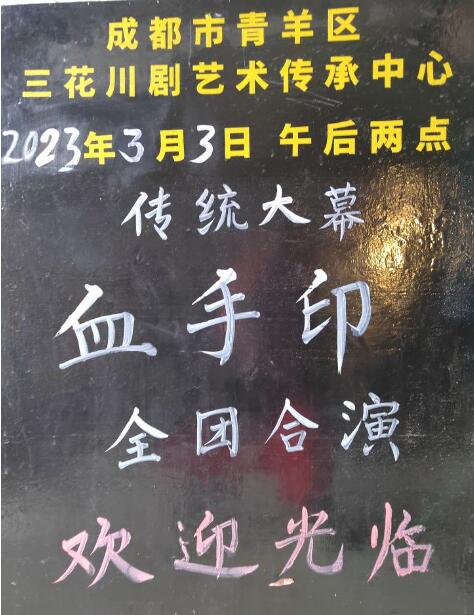 成都市青羊区
三花川剧艺术传承中心
2023年3月3日 午后两点
传统大幕
血手印
全团合演
欢迎光临